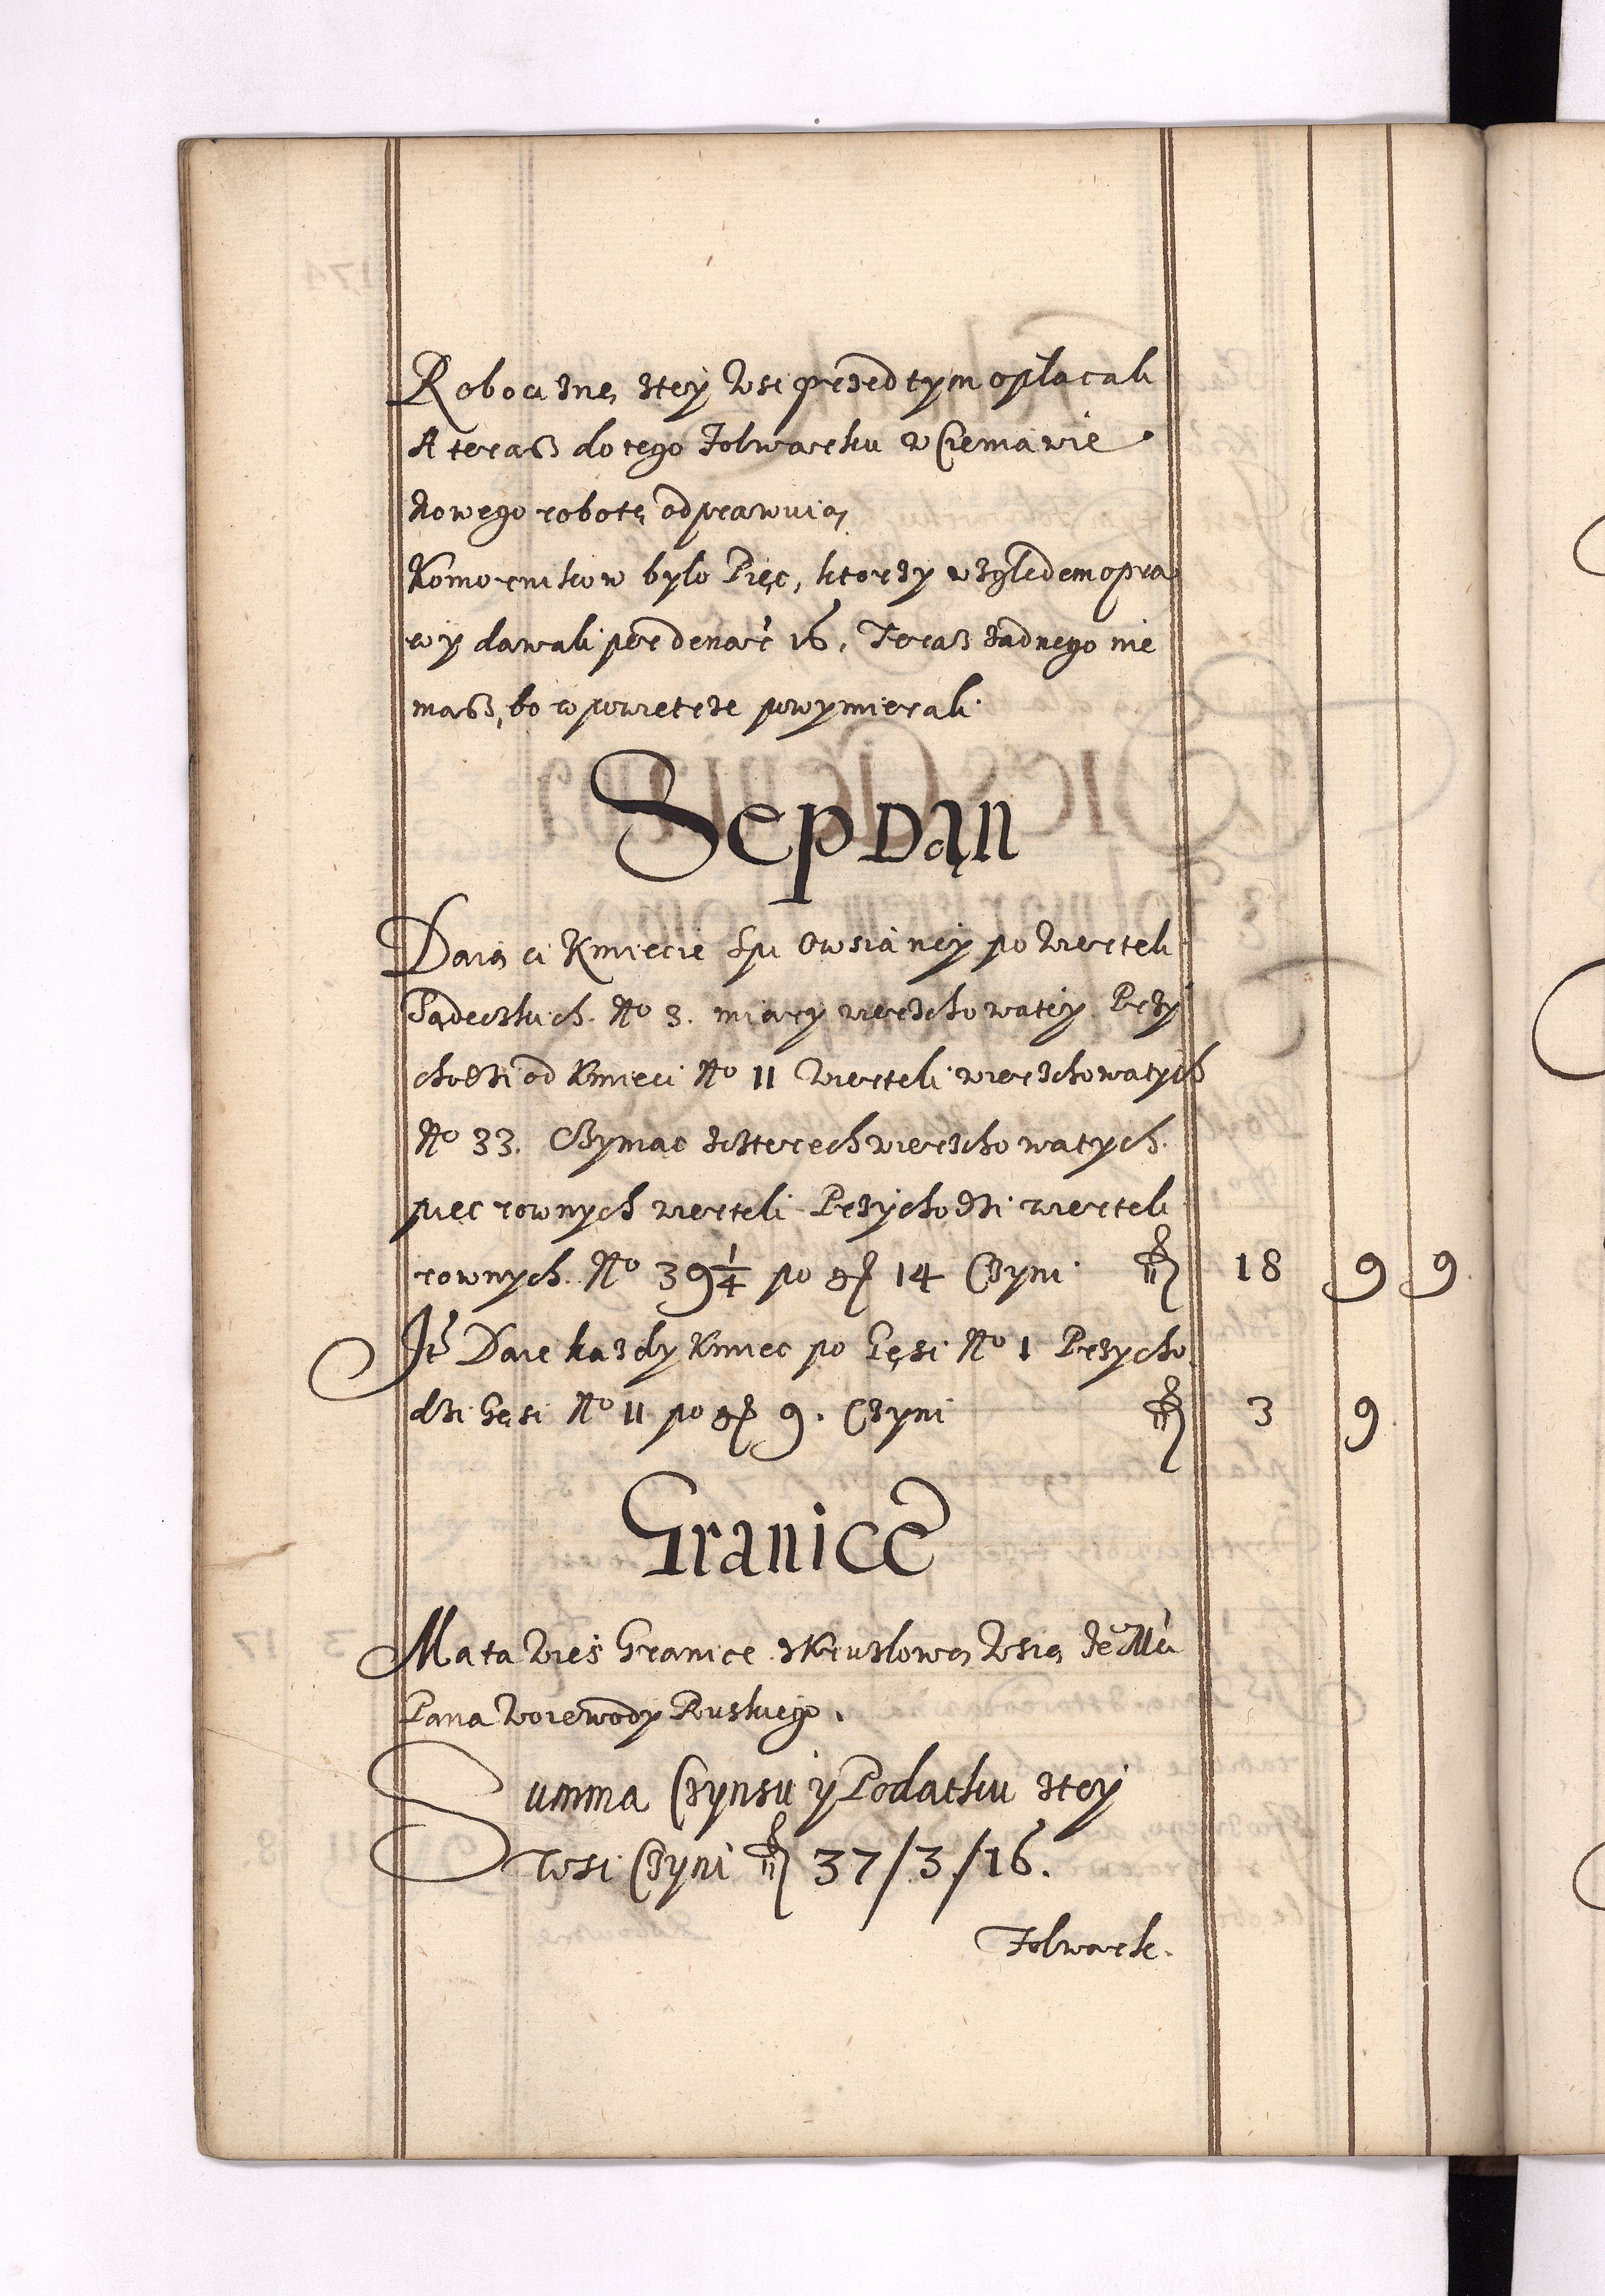 Robociznę ztey Wsi przed tym opłacali
A teraß do tego Folwarku w Ciemawie
Nowego robotę odprawuią
Komornikow bylo Pięc, ktorzy względem opra
wy dawali per denar 16. Teraß żadnego nie
maß, bo w powietrze powymierali.
Sep Dąn
Daią ci Kmiecie Spu Owsianey po Wierteli
Sądeczkich. No 3. miary wierzchowatey. Przy
chodzi od Kmieci No 11 Wierteli wierzchowatych
No 33. Czyniąc zczterech wierzchowatych
pięc rownych wierteli Przychodzi wierteli
rownych. No 39 1/4 po gr 14 Czyni fl 18 9 9
It Daie kazdy Kmiec po Gęsi No 1 Przycho
dzi Gęsi No 11 po gr 9. Czyni fl 3 9
Granice
Mata Wieś Granice z Kruzlową Wsią Je Mci
Pana Woiewody Ruskiego.
Summa Czynsu y Podatku ztey
Wsi Czyni fl 37/3/16.
Folwark.